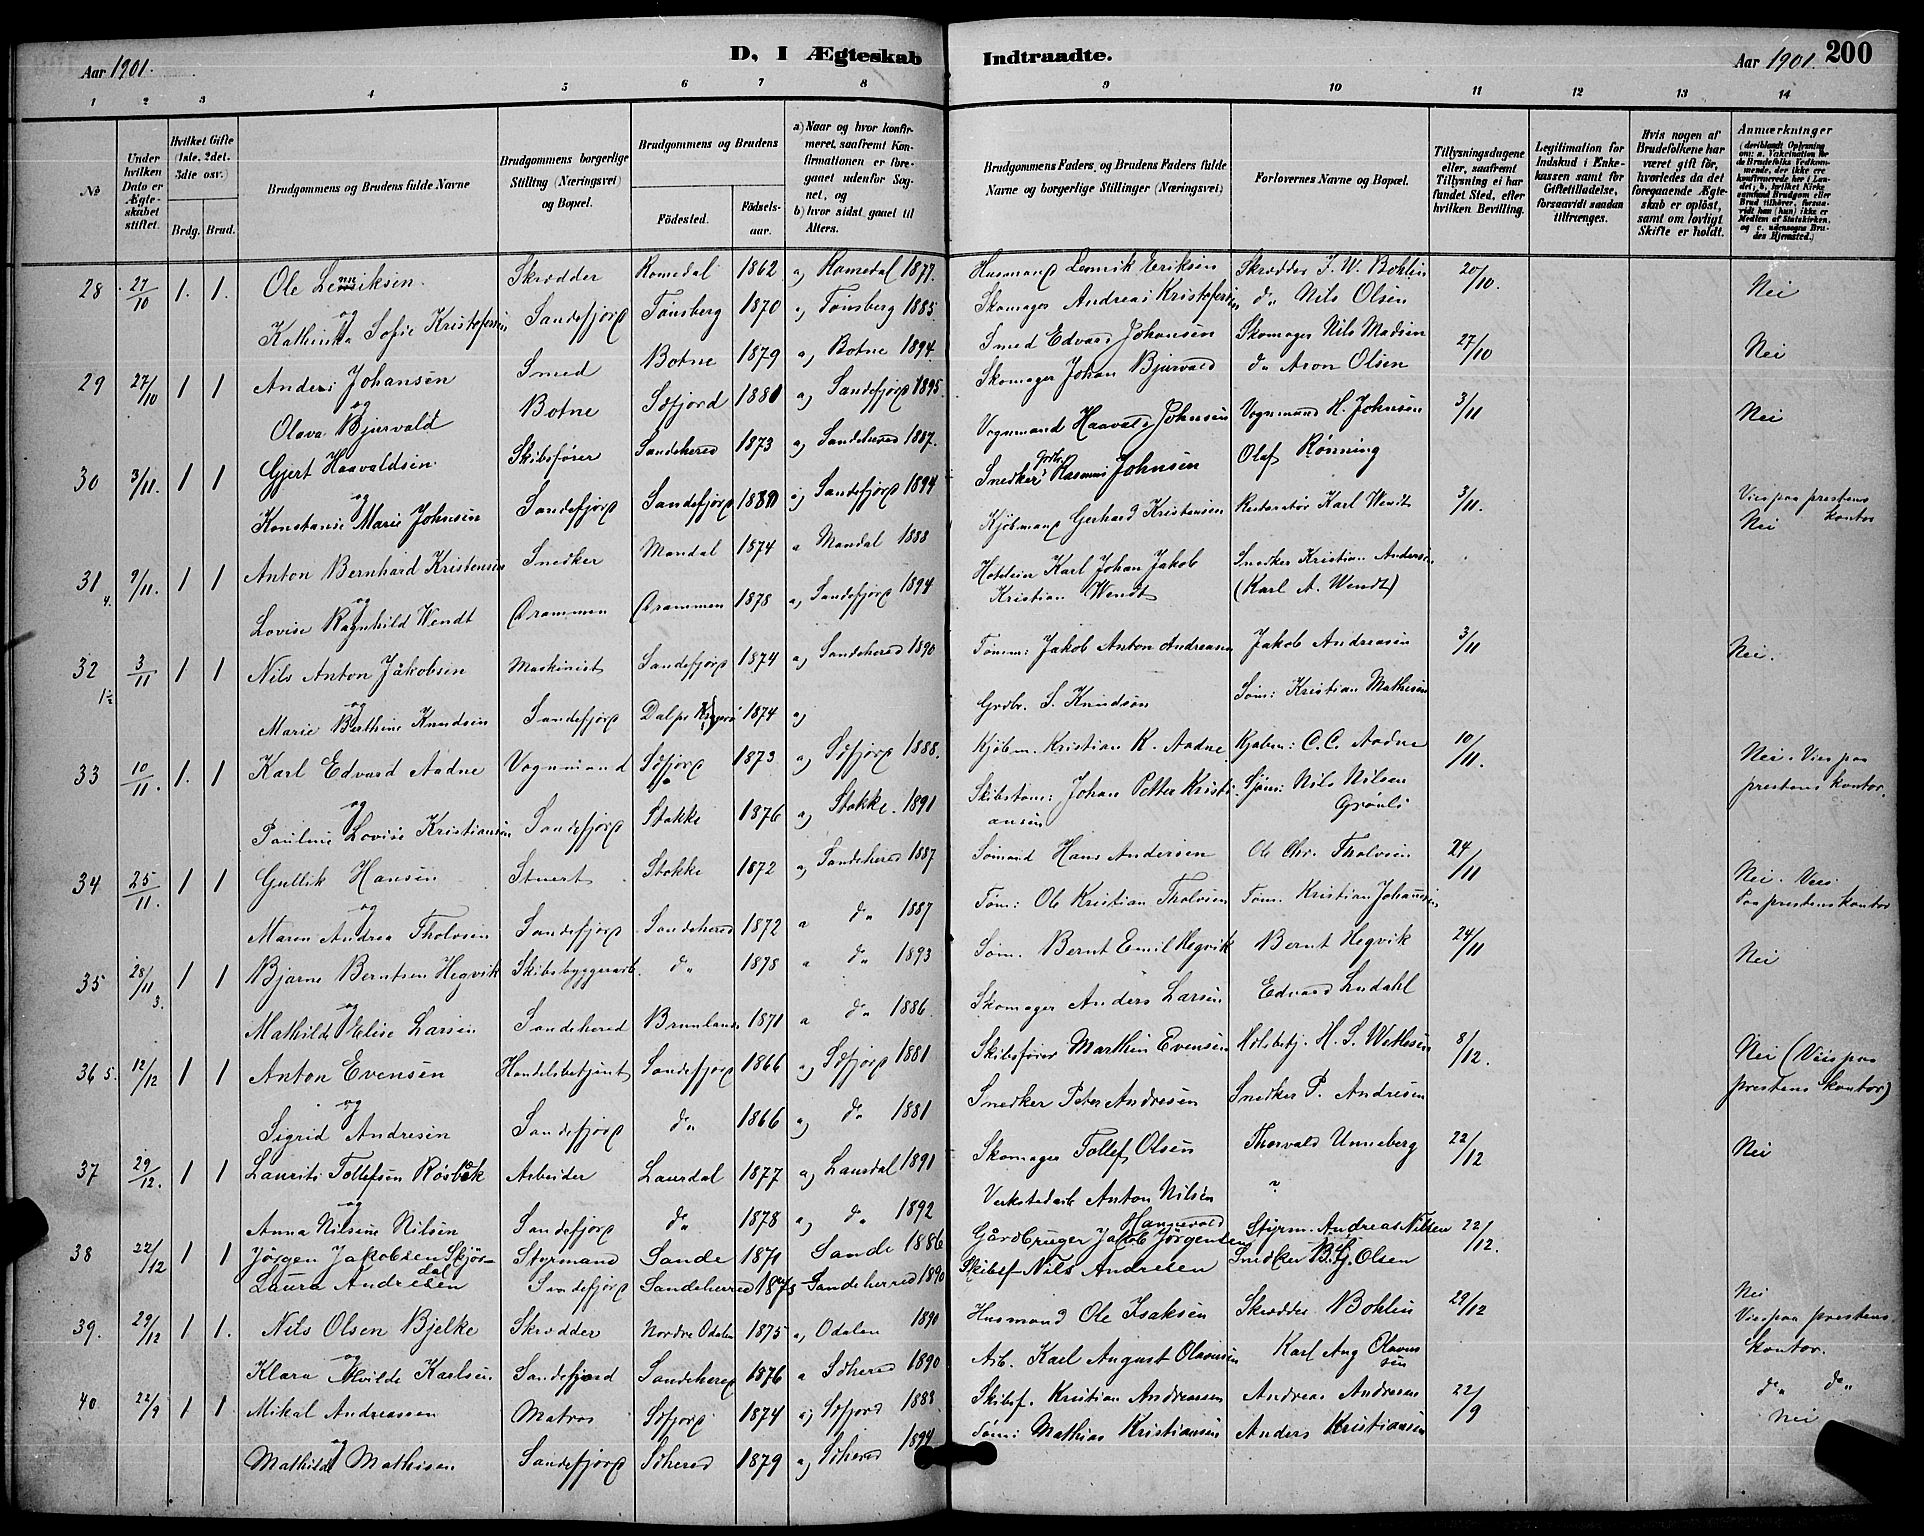 Aar 1901.
D. I Ægteskab
Indtraadte.
Aar 1901.
200
1 2 3 4 5 6 7 8 9 10 11 12 13 14
No
Under hvilken Dato er Ægteskabet stiftet.
Hvilket Gifte (1ste. 2det. 3die osv.)
Brdg. Brud.
Brudgommens og Brudens fulde Navne
Brudgommens borgerlige Stilling (Næringsvei) og Bopæl.
Brudgommens og Brudens
Födested.
Födsels-aar.
a) Naar og hvor konfirmeret, saafremt Konfirmationen er foregaaet udenfor Sognet, og
b) hvor sidst gaaet til Alters.
Brudgommens Faders, og Brudens Faders fulde Navne og borgerlige Stillinger (Næringsvei)
Forlovernes Navne og Bopæl.
Tillysningsdagene eller, saafremt Tillysning ei har fundet Sted, efter hvilken Bevilling.
Legitimation for Indskud i Enkekassen samt for Giftetilladelse, forsaavidt saadan tiltrænges.
Hvis nogen af Brudefolkene har været gift för, hvorledes da det foregaaende Ægteskab er oplöst, samt om lovligt Skifte er holdt.
Anmærkninger (deriblandt Oplysning om: a. Vakcination for de Brudefolks Vedkommende, der ikke ere konfirmerede her i Landet; b. hvilket Kirkesamfund Brudgom eller Brud tilhörer, forsaavidt han (hun) ikke er Medlem af Statskirken, og c. udensogns Brudes Hjemsted.)
28 27/10 1. 1. Ole Lenriksen Skrædder Romedal 1862 a) Romedal 1877. Husmand Lenrik Eriksen Skrædder J. W. Bohlin 20/10. Nei
og Kathinka Sofie Kristofersen Sandefjord Tønsberg 1870 a) Tønsberg 1885. Skomager Andreas Kristofersen do Nils Olsen
29 27/10 1 1 Anders Johansen Smed Botne 1879 a) Botne 1894. Smed Edvard Johansen Skomager Nils Madsen 27/10 Nei
og Olava Bjurvald Botne Sdfjord 1881 a) Sandefjord 1895. Skomager Johan Bjurvald do Aron Olsen
30 3/11. 1 1 Gjert Haavaldsen Skibsfører Sandeherred 1873 a) Sandeherred 1887. Vognmand Haavald Johnsen Vognmand H. Johnsen 3/11 Nei
og Konstanse Marie Johnsen Sandefjord Sandefjord 1880 a) Sandefjord 1894 Snedker Rasmus Johnsen Olaf Rønning
31 9/11. 1 1 Anton Bernhard Kristensen Snedker Mandal 1874 a Mandal 1888 Kjøbmand Gerhard Kristensen Restoratør Karl Wendt 3/11. Vies paa prestens kontor Nei
og Lovise Ragnhild Wendt Drammen Drammen 1878 a) Sandefjord 1894 Hoteleier Karl Johan Jakob Kristian Wendt Snedker Kristian Andersen (Karl A. Wendt)
32 3/11 1 1 Nils Anton Jakobsen Maskinist Sandefjord 1874 a) Sandeherred 1890 Tømm: Jakob Anton Andreasen Jakob Andreasen 3/11 Nei.
1½ og Marie Berthine Knudsen Sandefjord 1874 a) Grdbr. S. Knudsen Søm: Kristian Mathisen
33 10/11. 1. 1 Karl Edvard Aadne Vognmand Sdfjord 1873 a) Sdfjord 1888. Kjøbm. Kristian K. Aadne Kjøbm: C. C. Aadne 10/11. Nei. Vies paa prestens kontor.
og Pauline Lovise Kristiansen Sandefjord Stokke 1876 a) Stokke. 1891 Skibstøm: Johan Petter Kristiansen Sjøm: Nils Nilsen Grønli
34 25/11. 1 1 Gullik Hansen Stuert Stokke 1872 a) Sandeherred 1887 Sømand Hans Andersen Ole Chr. Tholvsen 24/11 Nei. Vies Paa prestens kontor
og Maren Andrea Tholvsen Sandefjord Sandeherred 1872 a do 1887 Tøm: Ole Kristian Tholvsen Tøm. Kristian Johansen
35 28/11 3. 1 1 Bjarne Berntsen Hegvik Skibsbyggerarb. do 1878 a do 1893 Søm. Bernt Emil Hegvik Bernt Hegvik 24/11 Nei
og Mathilde Elise Larsen Sandeherred Brunlanes 1871 a do 1886. Skomager Anders Larsen Edvard Lindahl
36 5. 12/12 1 1 Anton Evensen Handelsbetjent Sandefjord 1866 a) Sdfjord 1881 Skibsfører Marthin Evensen Hdlsbetj. H. S. Wetlesen 8/12. Nei (Vies paa prestens kontor)
og Sigrid Andresen Sandefjord do 1866 a) do 1881 Snedker Peter Andresen Snedker P. Andresen
37 29/12. 1 1 Laurits Tollefsen Røsbæk Arbeider Laurdal 1877 a) Laurdal 1891 Skomager Tollef Olsen Thorvald Unneberg 22/12 Nei
og Anna Nilsine Nilsen Sandefjord do 1878 a) do 1892 Verkstedarb Anton Nilsen ?
38 22/12 1 1 Jørgen Jakobsen Skjørdal Styrmand Sande 1871 Sande 1886 Gårdbruger Jakob Jørgensen Hannevold Styrm. Andreas Nilsen 22/12.
Laura Andresen Sandefjord Sandeherred 1875 Sandeherred 1890 Skibsf. Nils Andresen Snedker B. G. Olsen
39. 29/12 1 1. Nils Olsen Bjelke Skrædder Nordre Odalen 1875 a) Odalen 1890 Husmand Ole Isaksen Skrædder Bohlin 29/12 Nei Vies paa prestens kontor.
og Klara Alvilde Karlsen Sandefjord Sandeherred 1876 a Sdherred 1890 Arb. Karl August Olavsen Karl Aug Olavssen
40 22/9 1 1 Mikal Andreassen Matros Sdfjord 1874 a) Sdfjord 1888 Skibsf. Kristian Andreassen Andreas Andresen 22/9 do do nei
og Mathilde Mathisen Sandefjord Sdherred 1879 a) Sdherred 1894 Tøm: Mathias Kristiansen Anders Kristiansen